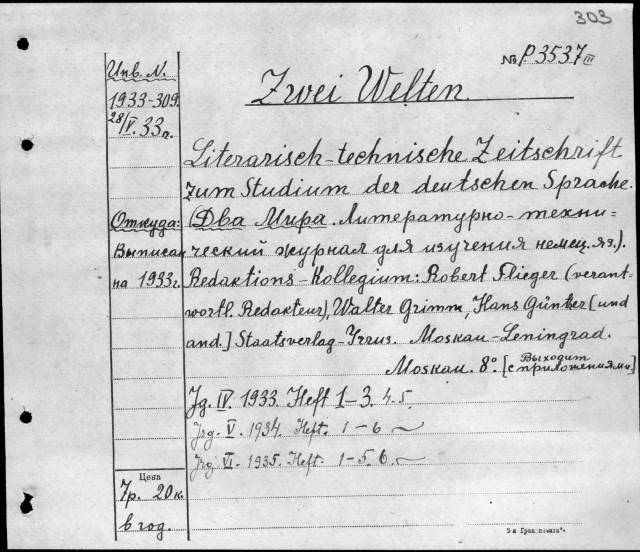 303
№ P.3537 III
Zwei Welten.
Инв. N.
1933-309.
28/V. 33 г.
Literarisch-technische Zeitschrift
zum Studium der deutschen Sprache.
Откуда:
(Два Мира. Литературно-техни-
Выписан
ческий журнал для изучения немец. яз.).
на 1933 г.
Redaktions-Kollegium: Robert Flieger (verant-
wortl. Redakteur), Walter Grimm, Hans Günther [und
and.] Staatsverlag- Moskau-Leningrad.
Moskau. 8° [Выходит
с приложениями]
Jg. IV. 1933. Heft 1-3. 4-5.
Jrg. V. 1934. Heft. 1-6
Jrg. VI. 1935. Heft. 1-5. 6.
Цена
7р. 20 к.
в год.